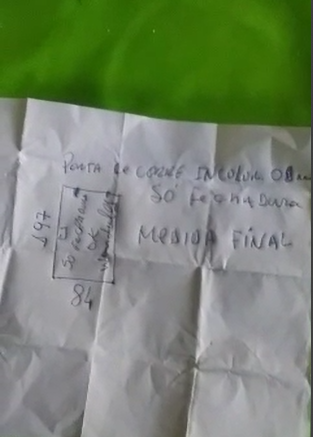 PORTA de CORRE INCOLOR 08mm
SÓ FECHADURA
MEDIDA FINAL
197
Só fechadura
OK
84